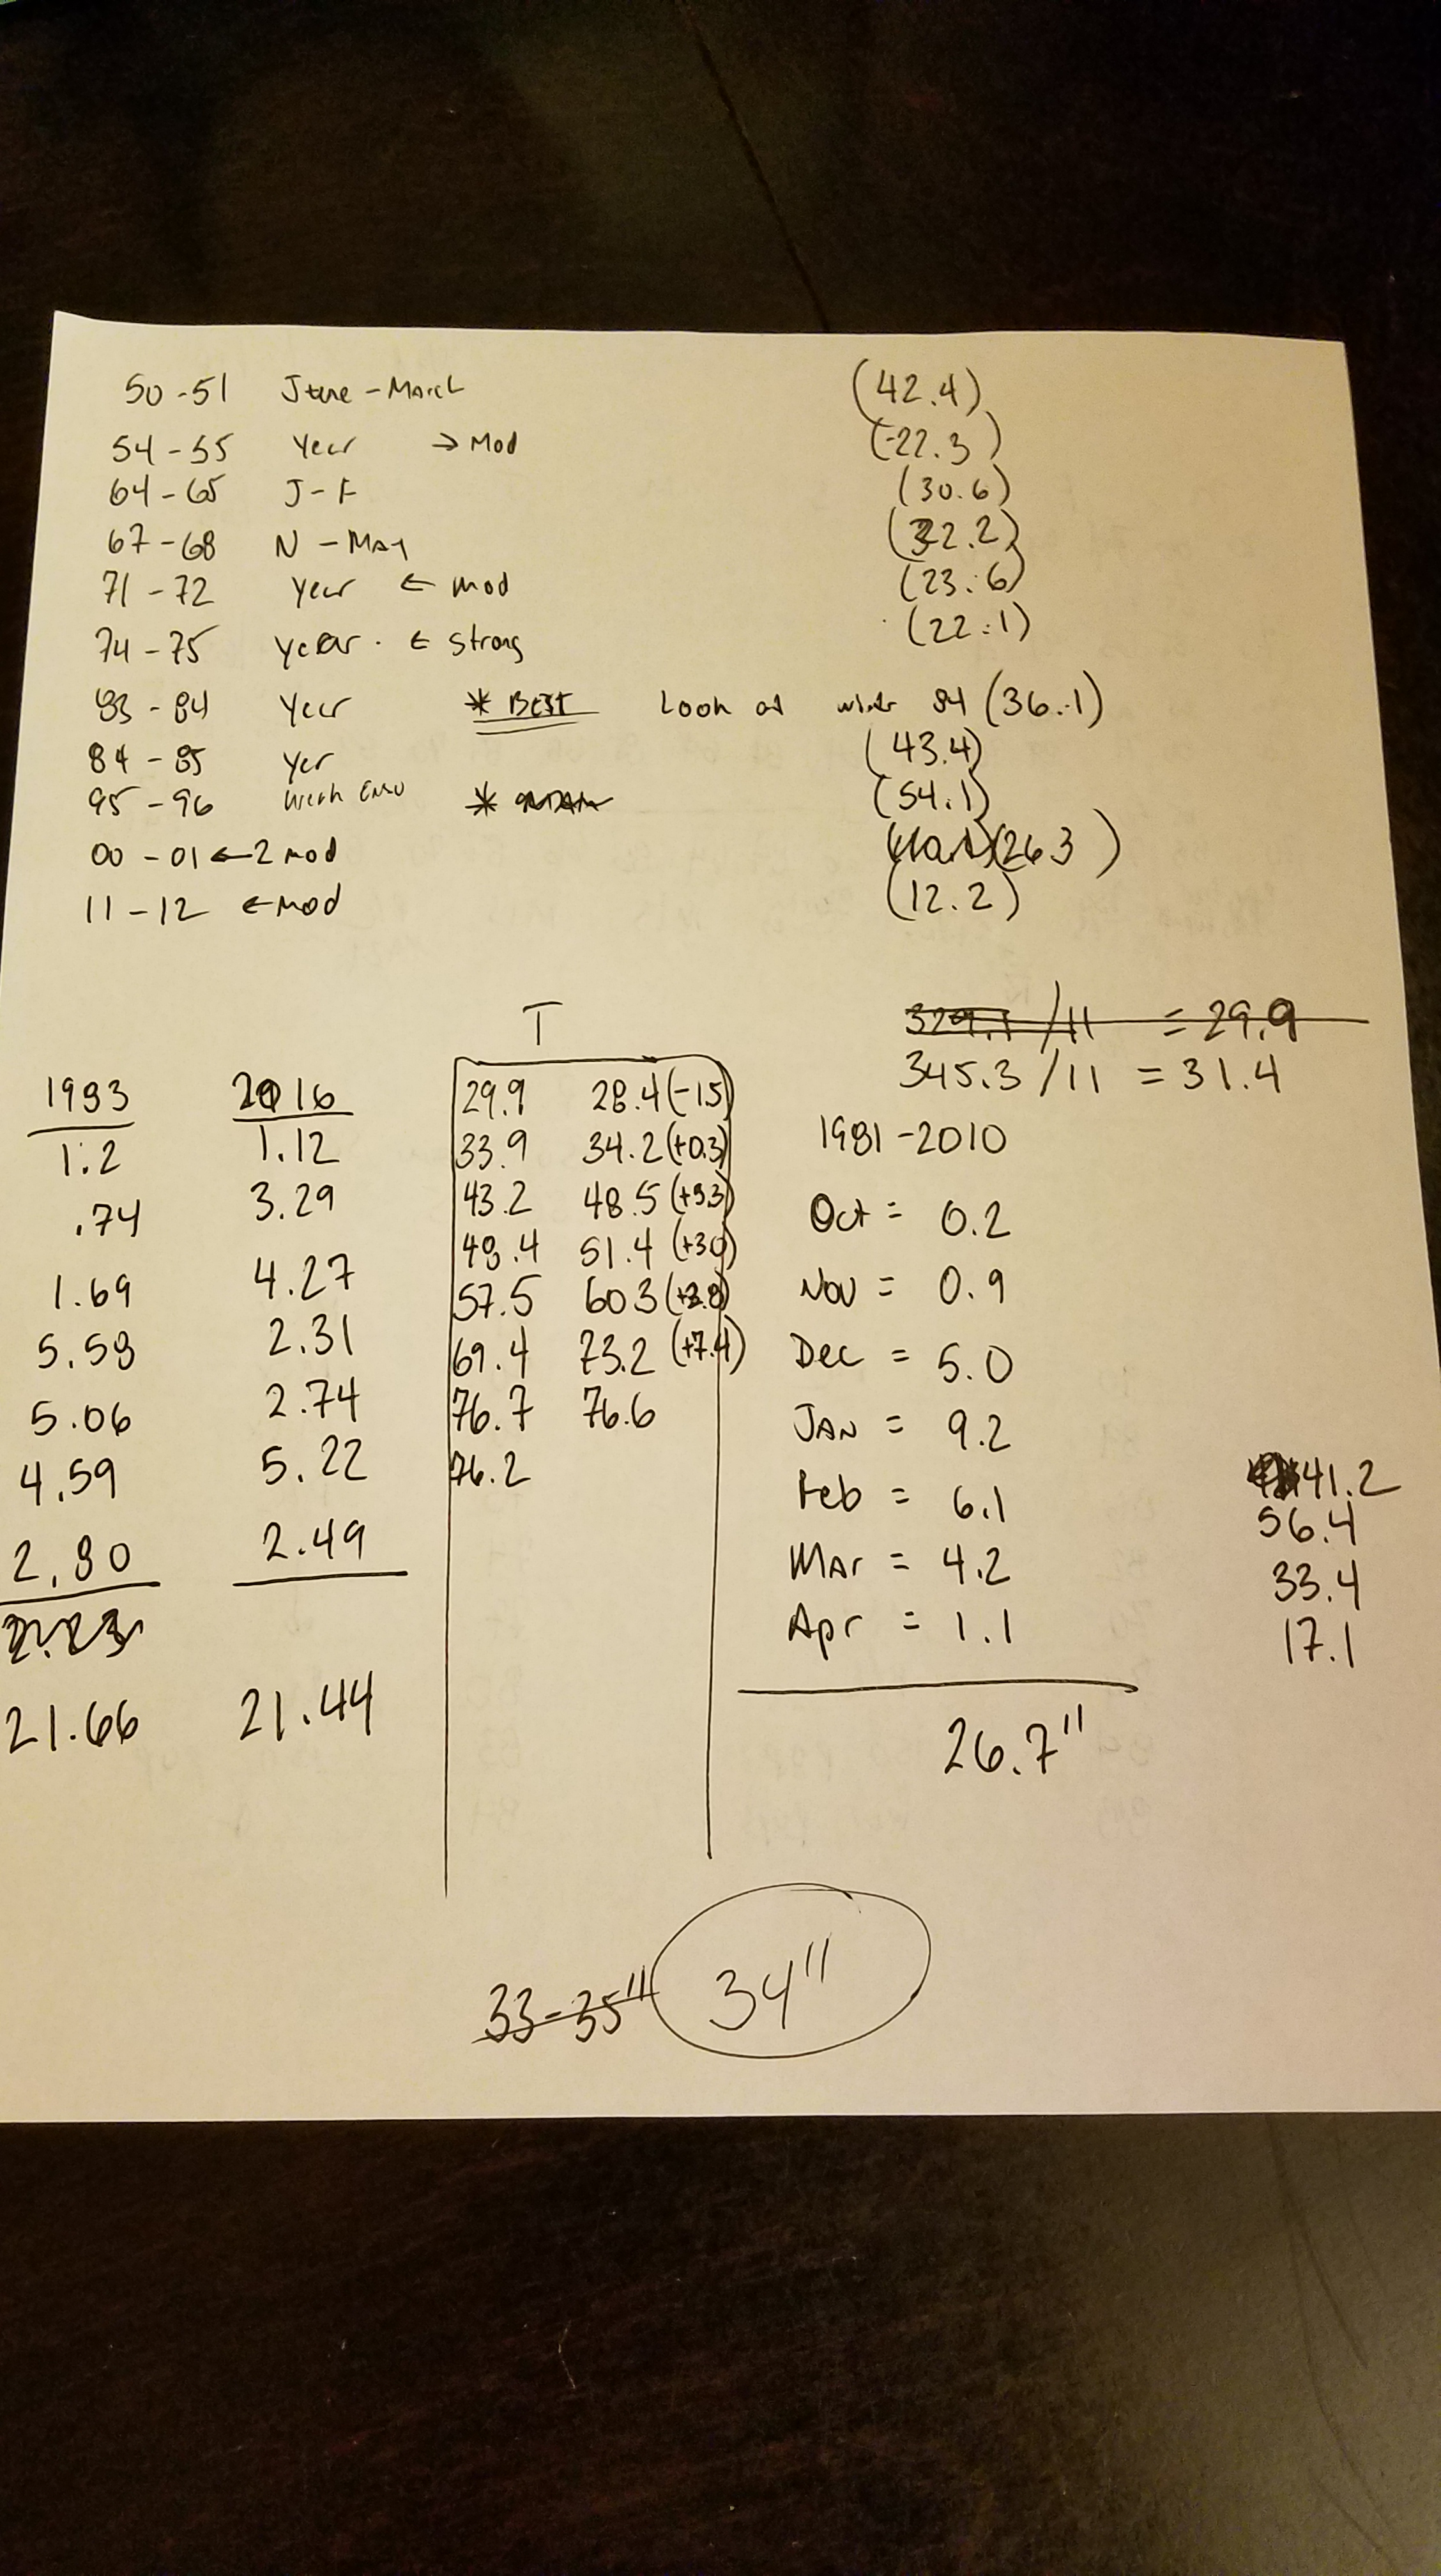 50-51 June - March (42.4)
54-55 Year → Mod (22.3)
64-65 J-F (30.6)
67-68 N - May (32.2)
71-72 Year ← Mod (23.6)
74-75 year. ← Strong (22.1)
83-84 Year * BEST Look at winter 84 (36.1)
84-85 Yer (43.4)
95-96 Weak (54.1)
00-01 ← 2 mod (26.3)
11-12 ← Mod (12.2)
329.1 /11 = 29.9
345.3 /11 = 31.4
T
1983 2016
1.2 1.12
.74 3.29
1.69 4.27
5.58 2.31
5.06 2.74
4.59 5.22
2.80 2.49
21.66 21.44
29.9 28.4 (-1.5)
33.9 34.2 (+0.3)
43.2 48.5 (+5.3)
48.4 51.4 (+3.0)
57.5 60.3 (+2.8)
69.4 73.2 (+7.4)
76.7 76.6
76.2
1981-2010
Oct = 0.2
Nov = 0.9
Dec = 5.0
JAN = 9.2
Feb = 6.1
Mar = 4.2
Apr = 1.1
26.7"
41.2
56.4
33.4
17.1
33-35" 34"